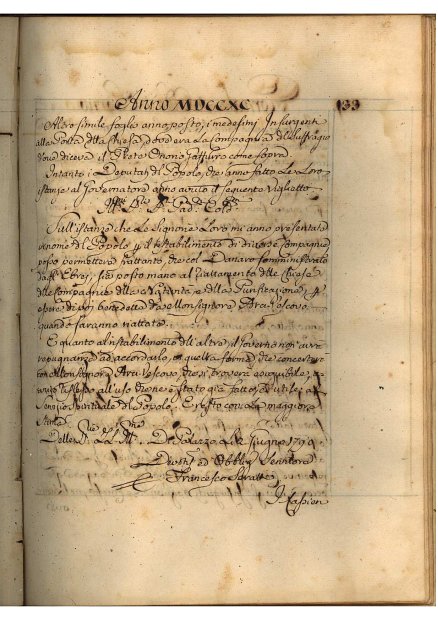 Anno MDCCXC 133
Altro simile foglio anno posto i medesimi Insurgenti
alla Porta della Chiesa, dove era La Compagnia del Suffragio
dove diceva il Proto Onorio Zaffuro come sopra.
Intanto i Deputati di Popolo, che anno fatto Le Loro
istanze al Governatore anno avuto il seguente Viglietto
Sull'istanza che Le Signorie Loro mi anno presentata
in nome del Popolo il ristabilimento di diverse Compagnie
posso permettere frattanto, che col Danaro somministrato
da Ebrei, sia posto mano al riattamento delle Chiese
delle Compagnie della Natività, e della Purificazione,
essere di poi benedette da Monsignore Arcivescovo,
quando saranno riattate.
E quanto al ristabilimento dell'altre, il Governo non avrà
repugnanza ad accordarlo, in quella forma, che concerterà
con Monsignore Arcivescovo, che si troverà eseguibile,
riflesso all'uso che ne è stato già fatto, e utile, al
Servizio Spirituale del Popolo. E resto con La maggiore
stima
Delle Di Palazzo Li 2 Giugno 1790
ed Obblig Servitore
Francesco Seratti